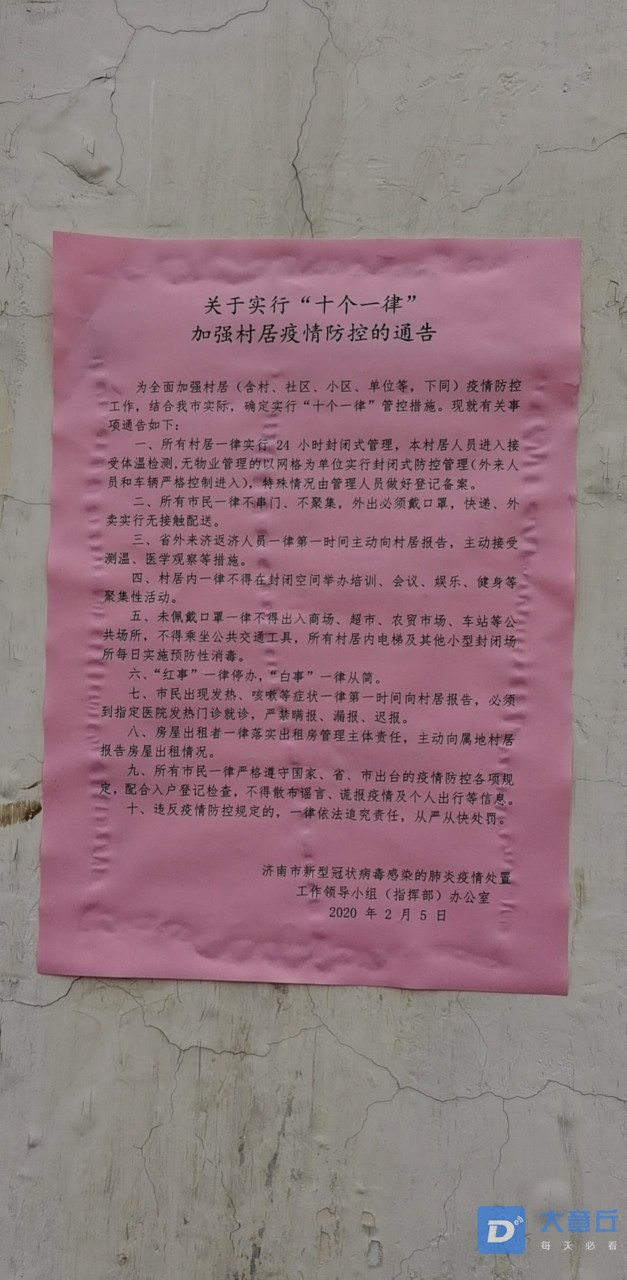 关于实行“十个一律”
加强村居疫情防控的通告
为全面加强村居（含村、社区、小区、单位等，下同）疫情防控
工作，结合我市实际，确定实行“十个一律”管控措施。现就有关事
项通告如下：
一、所有村居一律实行 24 小时封闭式管理，本村居人员进入接
受体温检测,无物业管理的以网格为单位实行封闭式防控管理(外来人
员和车辆严格控制进入)，特殊情况由管理人员做好登记备案。
二、所有市民一律不串门、不聚集，外出必须戴口罩，快递、外
卖实行无接触配送。
三、省外来济返济人员一律第一时间主动向村居报告，主动接受
测温、医学观察等措施。
四、村居内一律不得在封闭空间举办培训、会议、娱乐、健身等
聚集性活动。
五、未佩戴口罩一律不得出入商场、超市、农贸市场、车站等公
共场所，不得乘坐公共交通工具，所有村居内电梯及其他小型封闭场
所每日实施预防性消毒。
六、“红事”一律停办，“白事”一律从简。
七、市民出现发热、咳嗽等症状一律第一时间向村居报告，必须
到指定医院发热门诊就诊，严禁瞒报、漏报、迟报。
八、房屋出租者一律落实出租房管理主体责任，主动向属地村居
报告房屋出租情况。
九、所有市民一律严格遵守国家、省、市出台的疫情防控各项规
定，配合入户登记检查，不得散布谣言、谎报疫情及个人出行等信息。
十、违反疫情防控规定的，一律依法追究责任，从严从快处罚。
济南市新型冠状病毒感染的肺炎疫情处置
工作领导小组（指挥部）办公室
2020 年 2 月 5 日
大章丘
每天必看